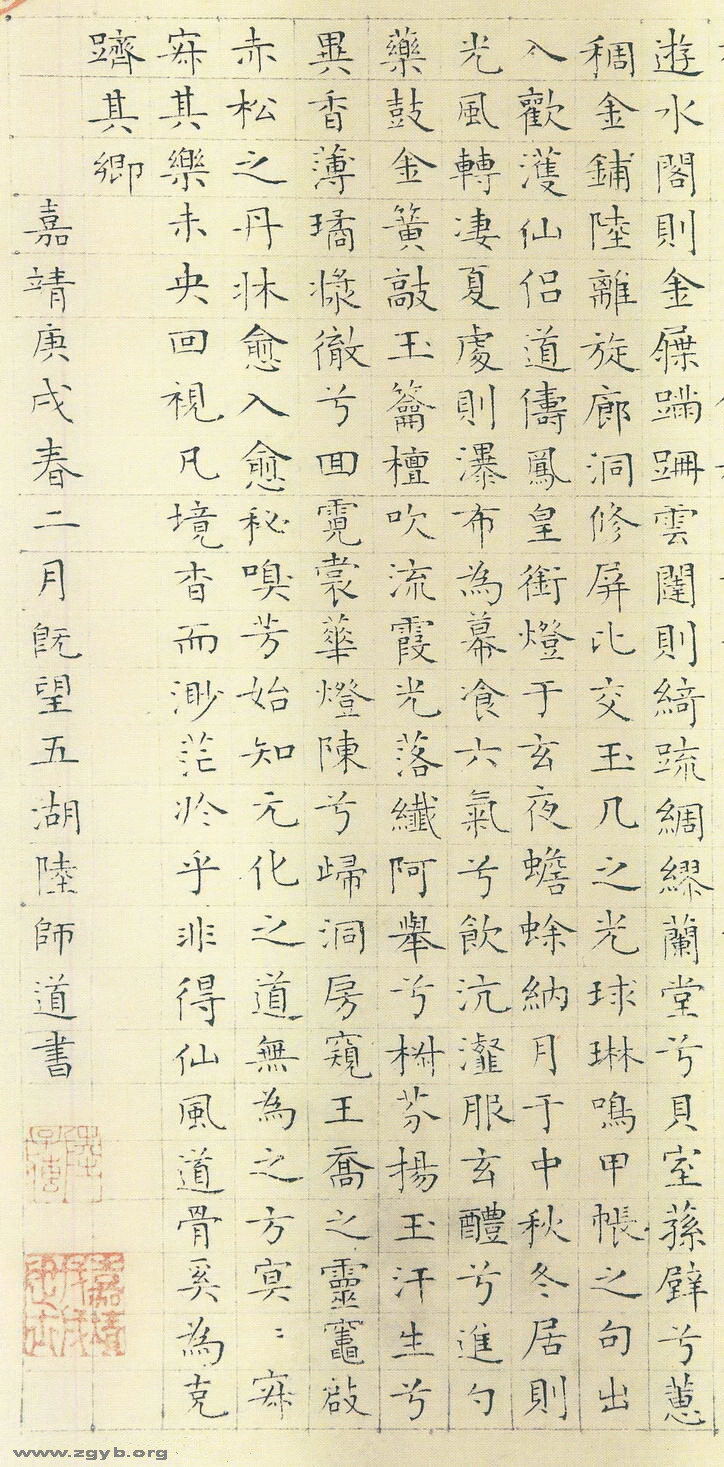 遊水閣則金屧蹣跚雲闥則綺疏綢繆蘭堂兮貝室蓀壁兮蕙
稠金鋪陸離旋廊洞修屏比交玉几之光球琳鳴甲帳之句出
入歡護仙侶道儔鳳皇銜燈于玄夜蟾蜍納月于中秋冬居則
光風轉凄夏處則瀑布為幕飡六氣兮飲沆瀣服玄醴兮進勺
藥鼓金簧敲玉籥檀吹流霞光落纖阿舉兮椒芬揚玉汗生兮
異香薄璚漿徹兮回霓裳華燈陳兮歸洞房窺王喬之靈竈啟
赤松之丹牀愈入愈秘嗅芳始知元化之道無為之方冥〻寂
寂其樂未央回視凡境杳而渺茫於乎非得仙風道骨奚為克
躋其鄉
嘉靖庚戌春二月既望五湖陸師道書
www.zgyb.org